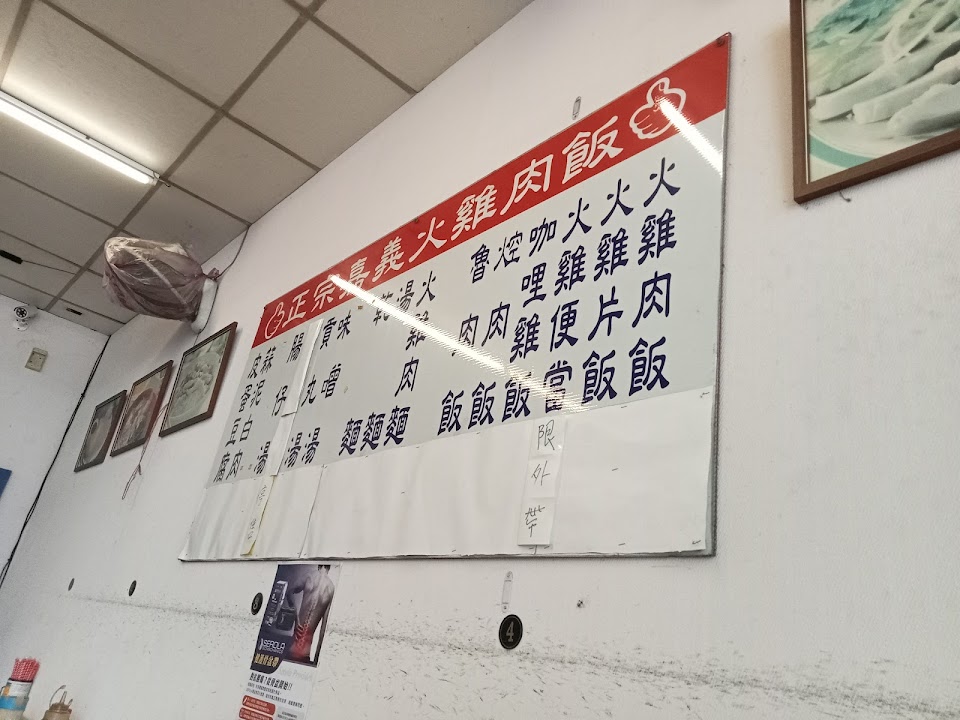 正宗嘉義火雞肉飯
火雞肉飯
火雞片飯
火雞便當
限外帶
咖哩雞飯
焢肉飯
魯肉飯
火雞肉麵
湯麵
乾麵
味噌湯
貢丸湯
腸仔湯
蒜泥白肉
皮蛋豆腐
SEROLA
4